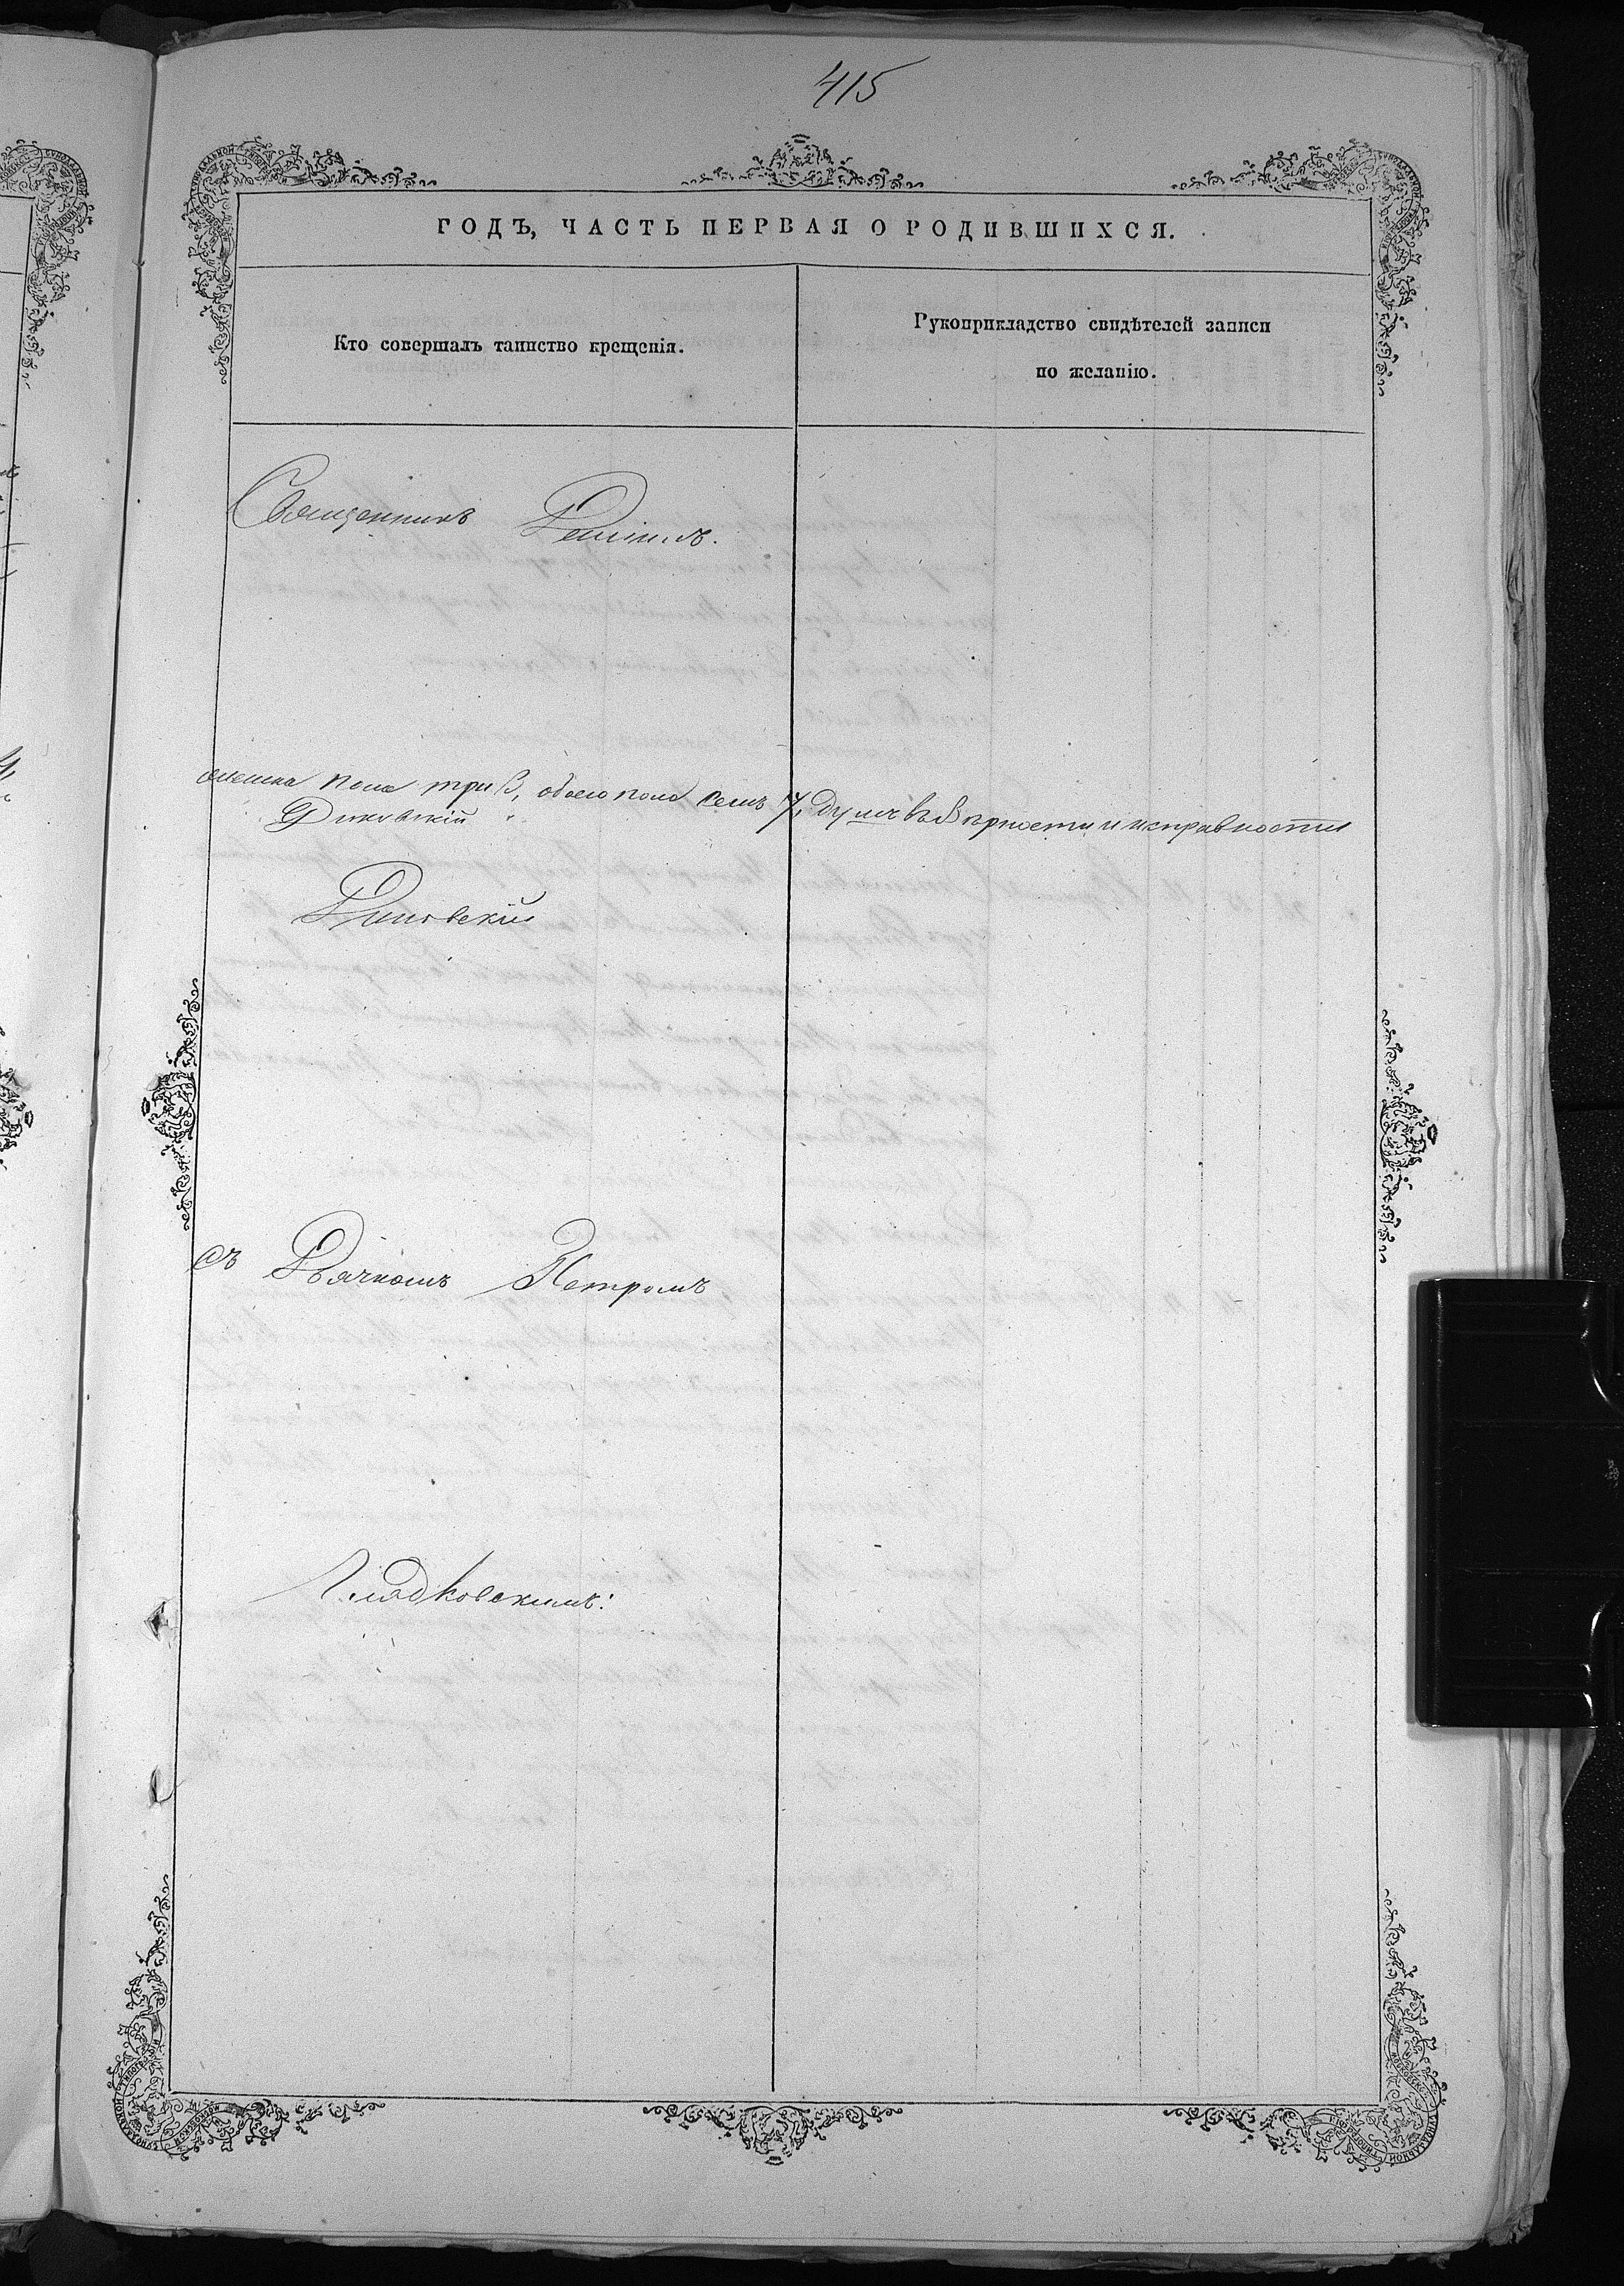 415
ГОДЪ, ЧАСТЬ ПЕРВАЯ О РОДИВШИХСЯ.
Кто совершалъ таинство крещенія.
Рукоприкладство свидѣтелей записи
по желанію.
Священникъ
пола три 3, обоего пола семь 7, душъ въ вѣрности и исправности
Дьячкомъ Петромъ
Гладковскимъ: